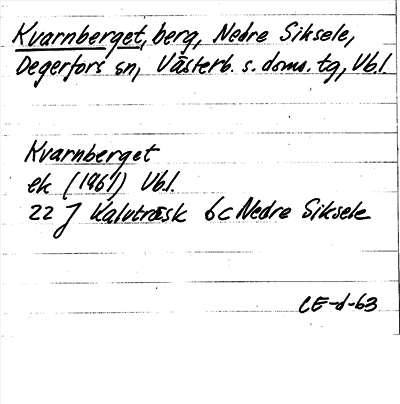 Kvarnberget, berg, Nedre Siksele,
Degerfors sn, Västerb. s. doms. tg, Vbl.
Kvarnberget
ek (1961) Vbl.
22 J Kalvträsk 6c Nedre Siksele
CE-d-63